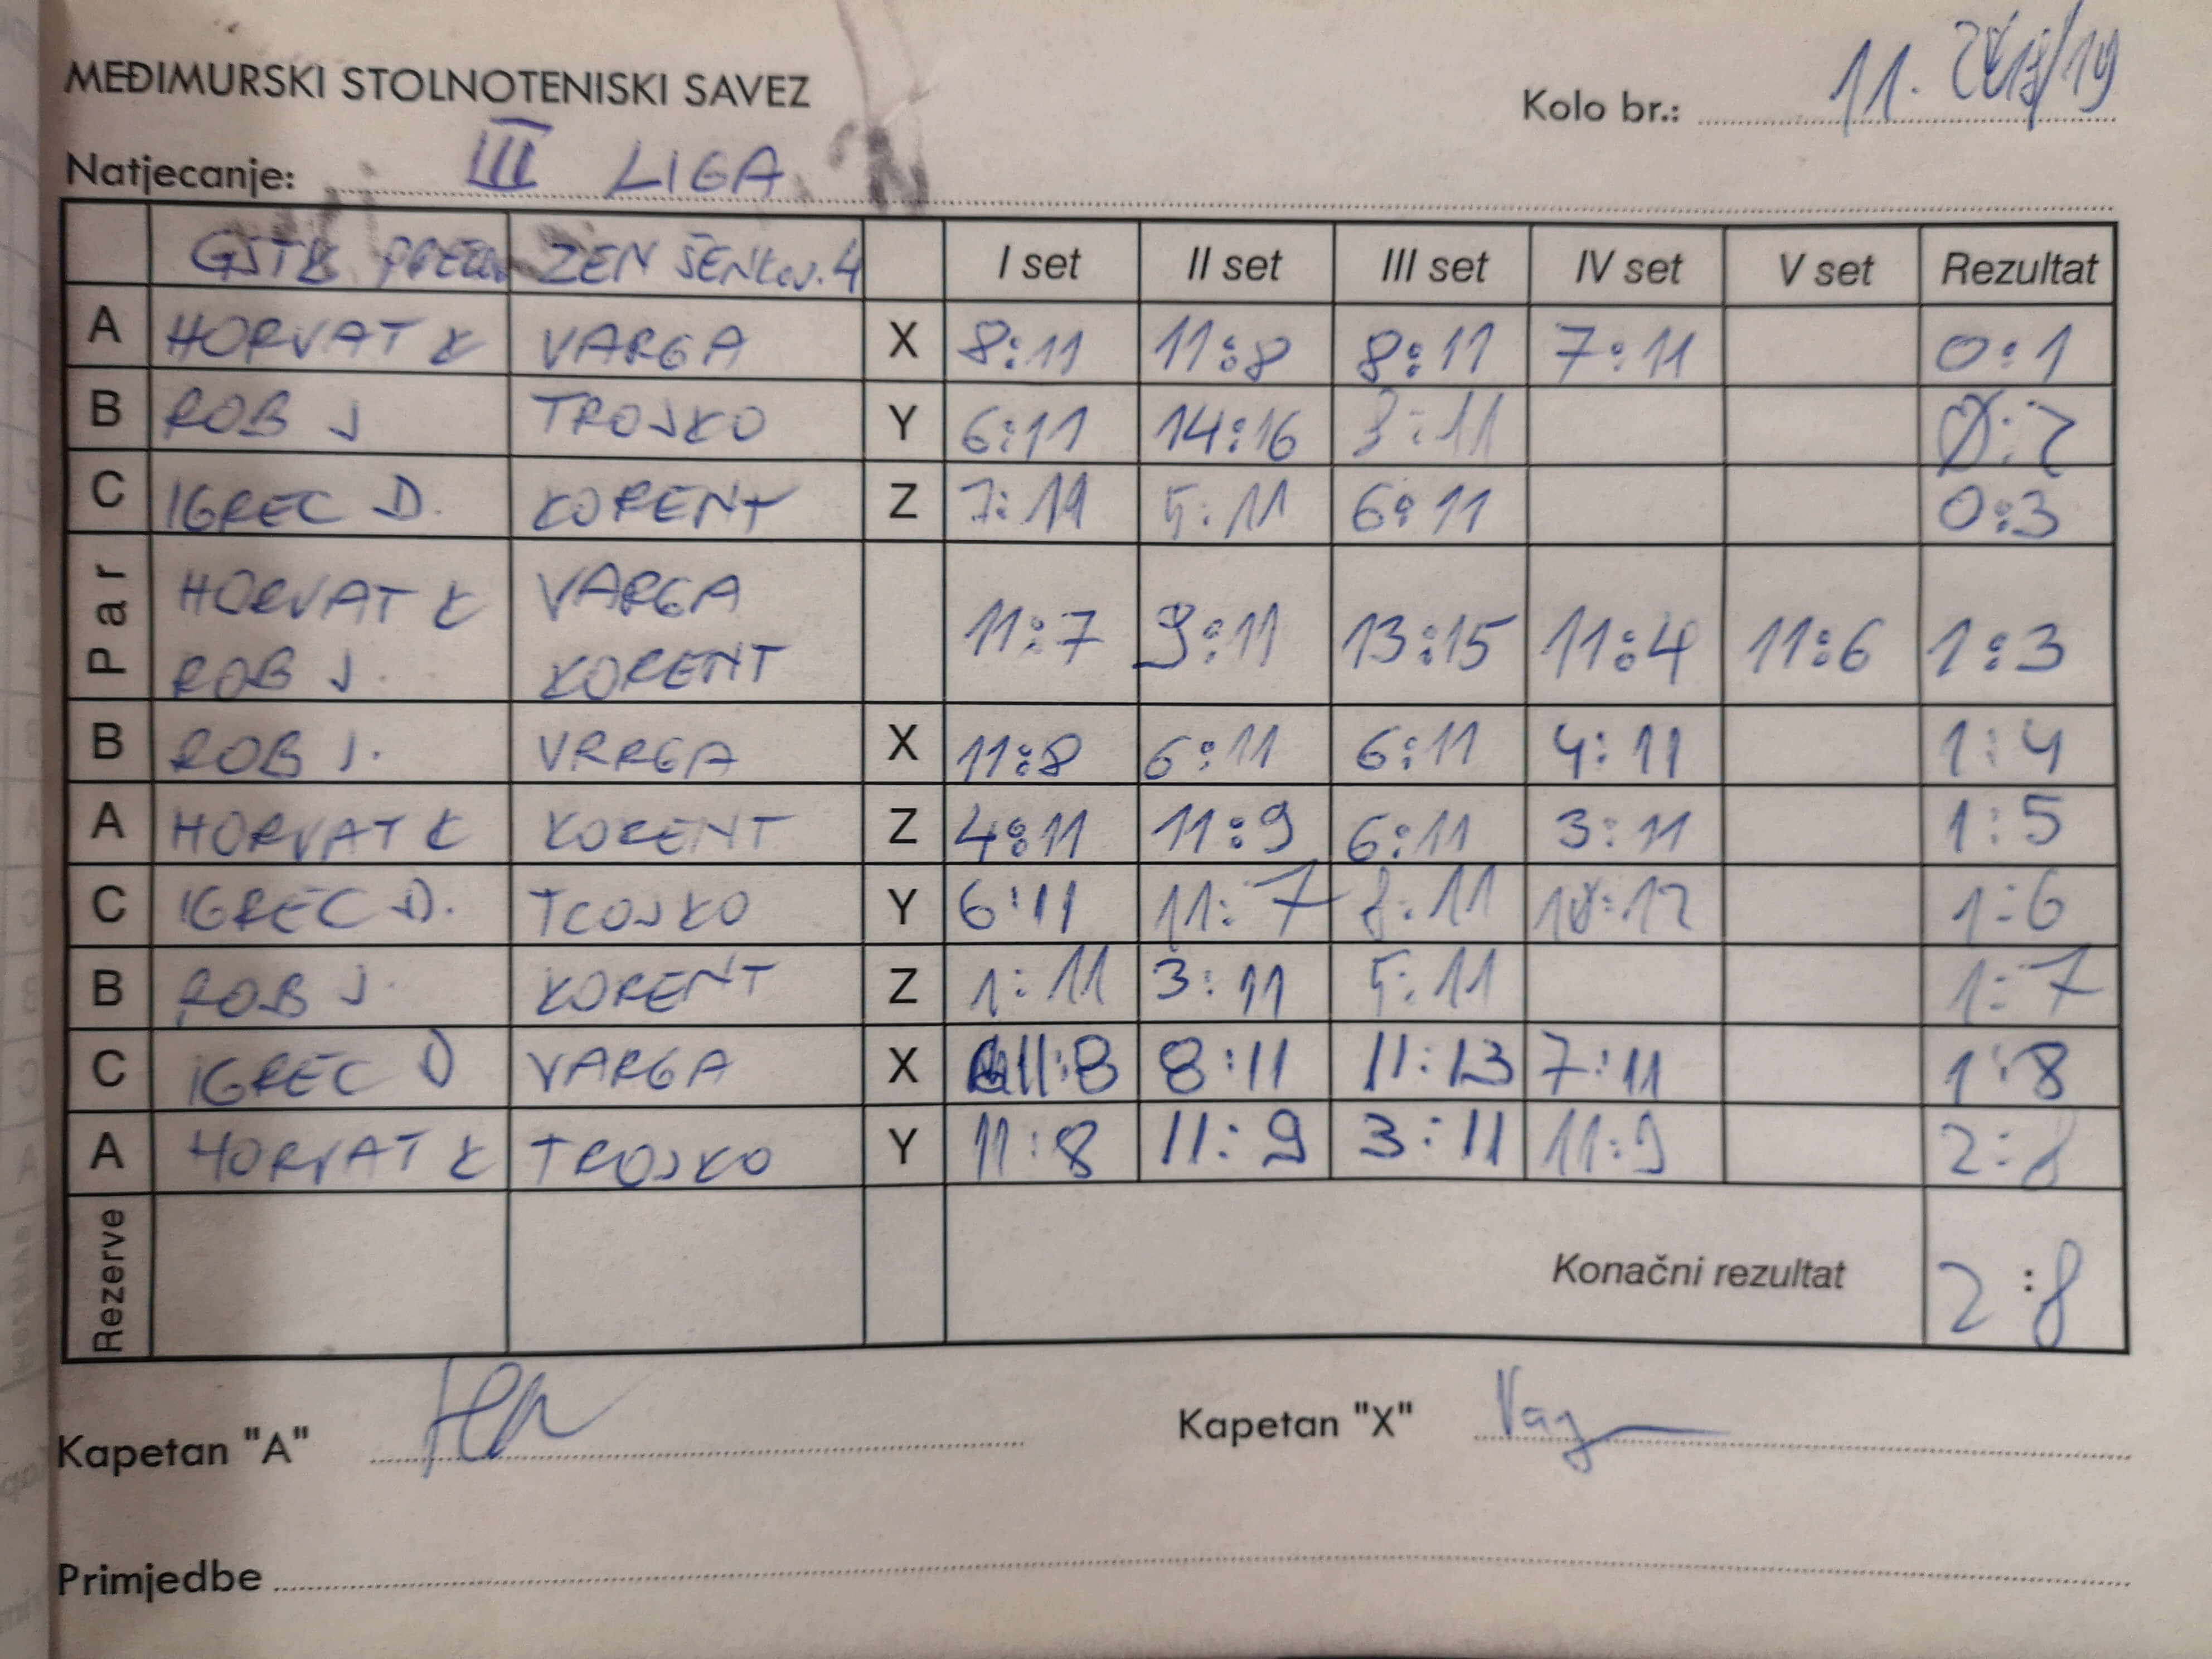 MEĐIMURSKI STOLNOTENISKI SAVEZ
Kolo br.: 11.
Natjecanje: III LIGA
GSTK ZEN ŠENKOV. 4 I set II set III set IV set V set Rezultat
A HORVAT K VARGA X 8:11 11:8 8:11 7:11 0:1
B ROB J TROJKO Y 6:11 14:16 8:11 0:2
C IGREC D. KORENT Z 7:11 5:11 6:11 0:3
Par HORVAT K VARGA
ROB J. KORENT
11:7 9:11 13:15 11:4 11:6 1:3
B ROB J. VRRGA X 11:8 6:11 6:11 4:11 1:4
A HORVAT K KORENT Z 4:11 11:9 6:11 3:11 1:5
C IGREC D. TROJKO Y 6:11 11:7 8:11 10:12 1:6
B ROB J. KORENT Z 1:11 3:11 5:11 1:7
C IGREC D VARGA X 11:8 8:11 11:13 7:11 1:8
A HORVAT K TROJKO Y 11:8 11:9 3:11 11:9 2:8
Rezerve Konačni rezultat 2:8
Kapetan "A" Kapetan "X"
Primjedbe